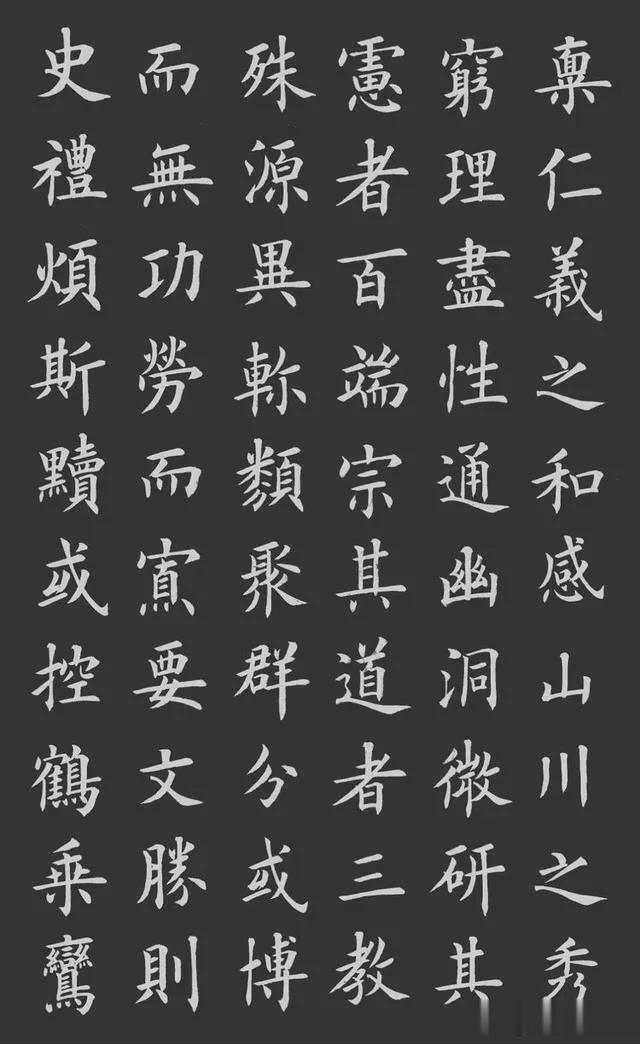 稟仁義之和感山川之秀
窮理盡性通幽洞微研其
慮者百端宗其道者三教
殊源異軫類聚群分或博
而無功勞而寡要文勝則
史禮煩斯黷或控鶴乘鸞